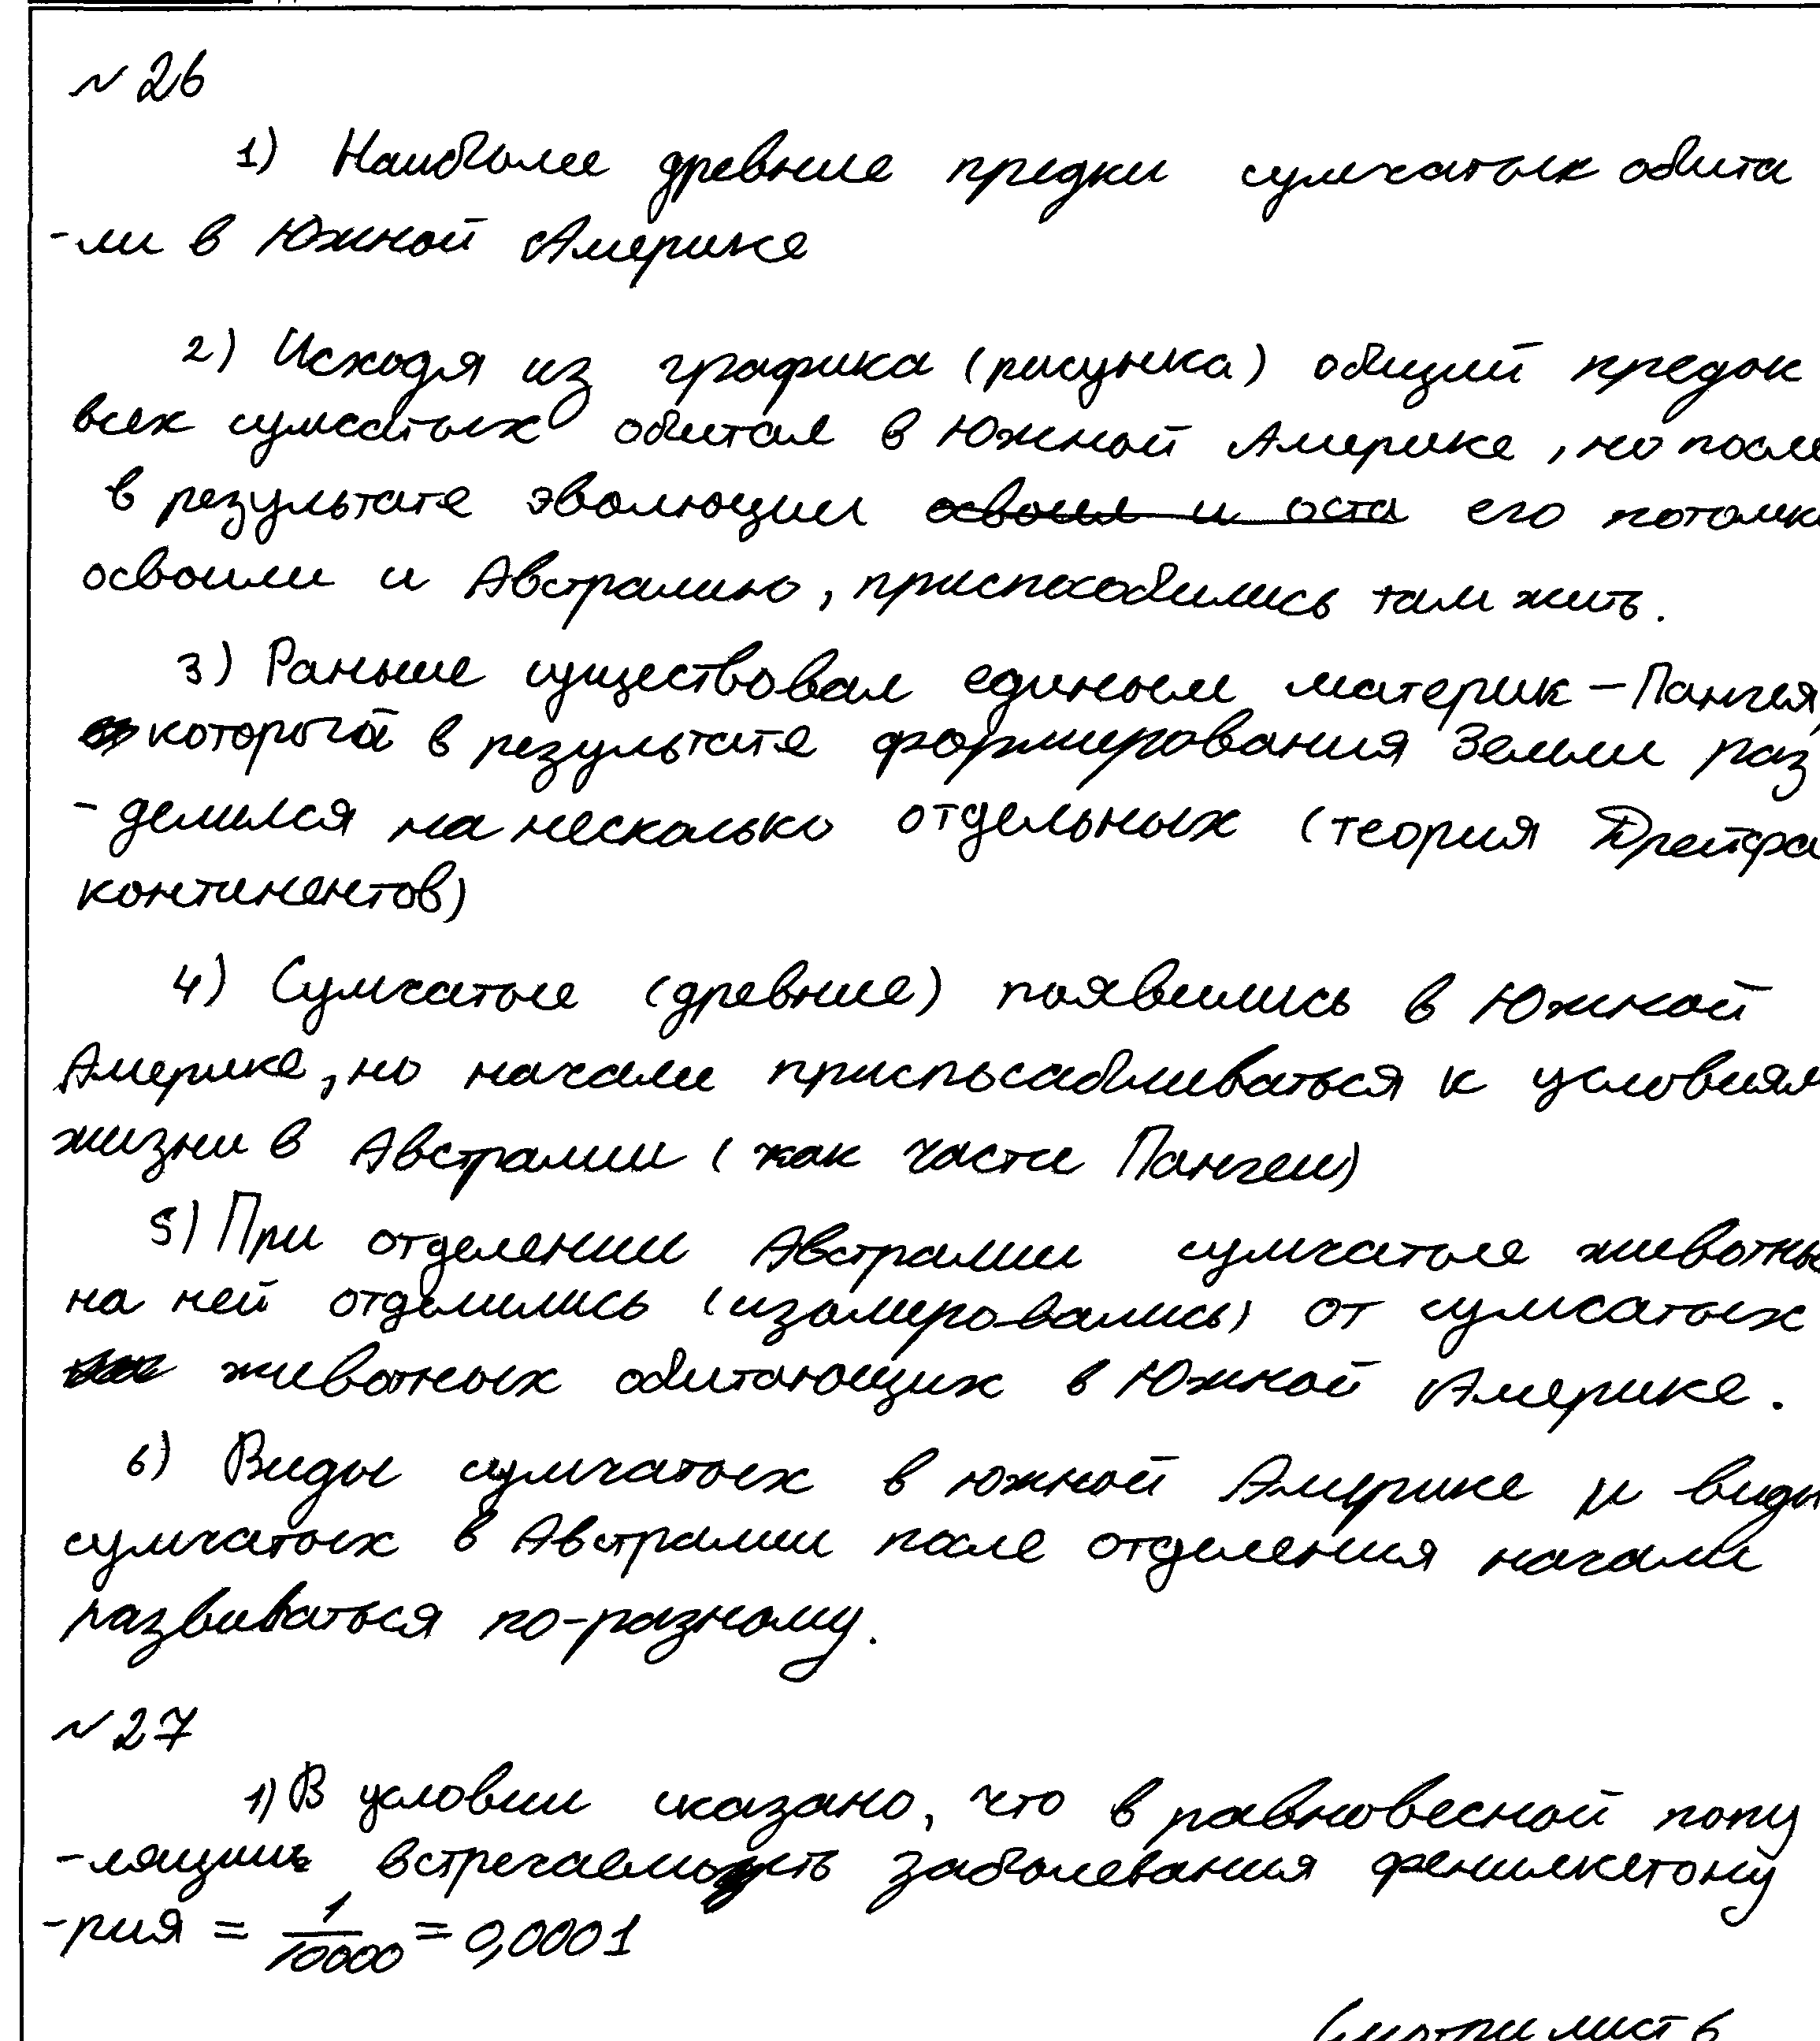 № 26
1) Наиболее древние предки сумчатых обита
-ли в Южной Америке
2) Исходя из графика (рисунка) общий предок
всех сумсатых обитал в Южной Америке, но после
в результате эволюции освоил и оста его потомк
освоили и Австралию, приспособились там жить.
3) Раньше существовал единым материк – Пангея,
который в результате формирования Земли раз
- делился на несколько отдельных (теория Дрейфа
континентов)
4) Сумчатые (древние) появились в Южной
Америке, но начали приспосабливаться к условиям
жизни в Австралии (как части Пангеи)
5) При отделении Австралии сумчатые животны
на ней отделились (изолировались) от сумсатых
животных обитающих в Южной Америке.
6) Виды сумчатых в южной Америке и виды
сумчатых в Австралии после отделения начали
развиваться по-разному.
№ 27
1) В условии сказано, что в равновесной попу
-ляции встречаемость заболевания фенилкетону
-рия = 1/10000 = 0,0001
Смотри лист 6